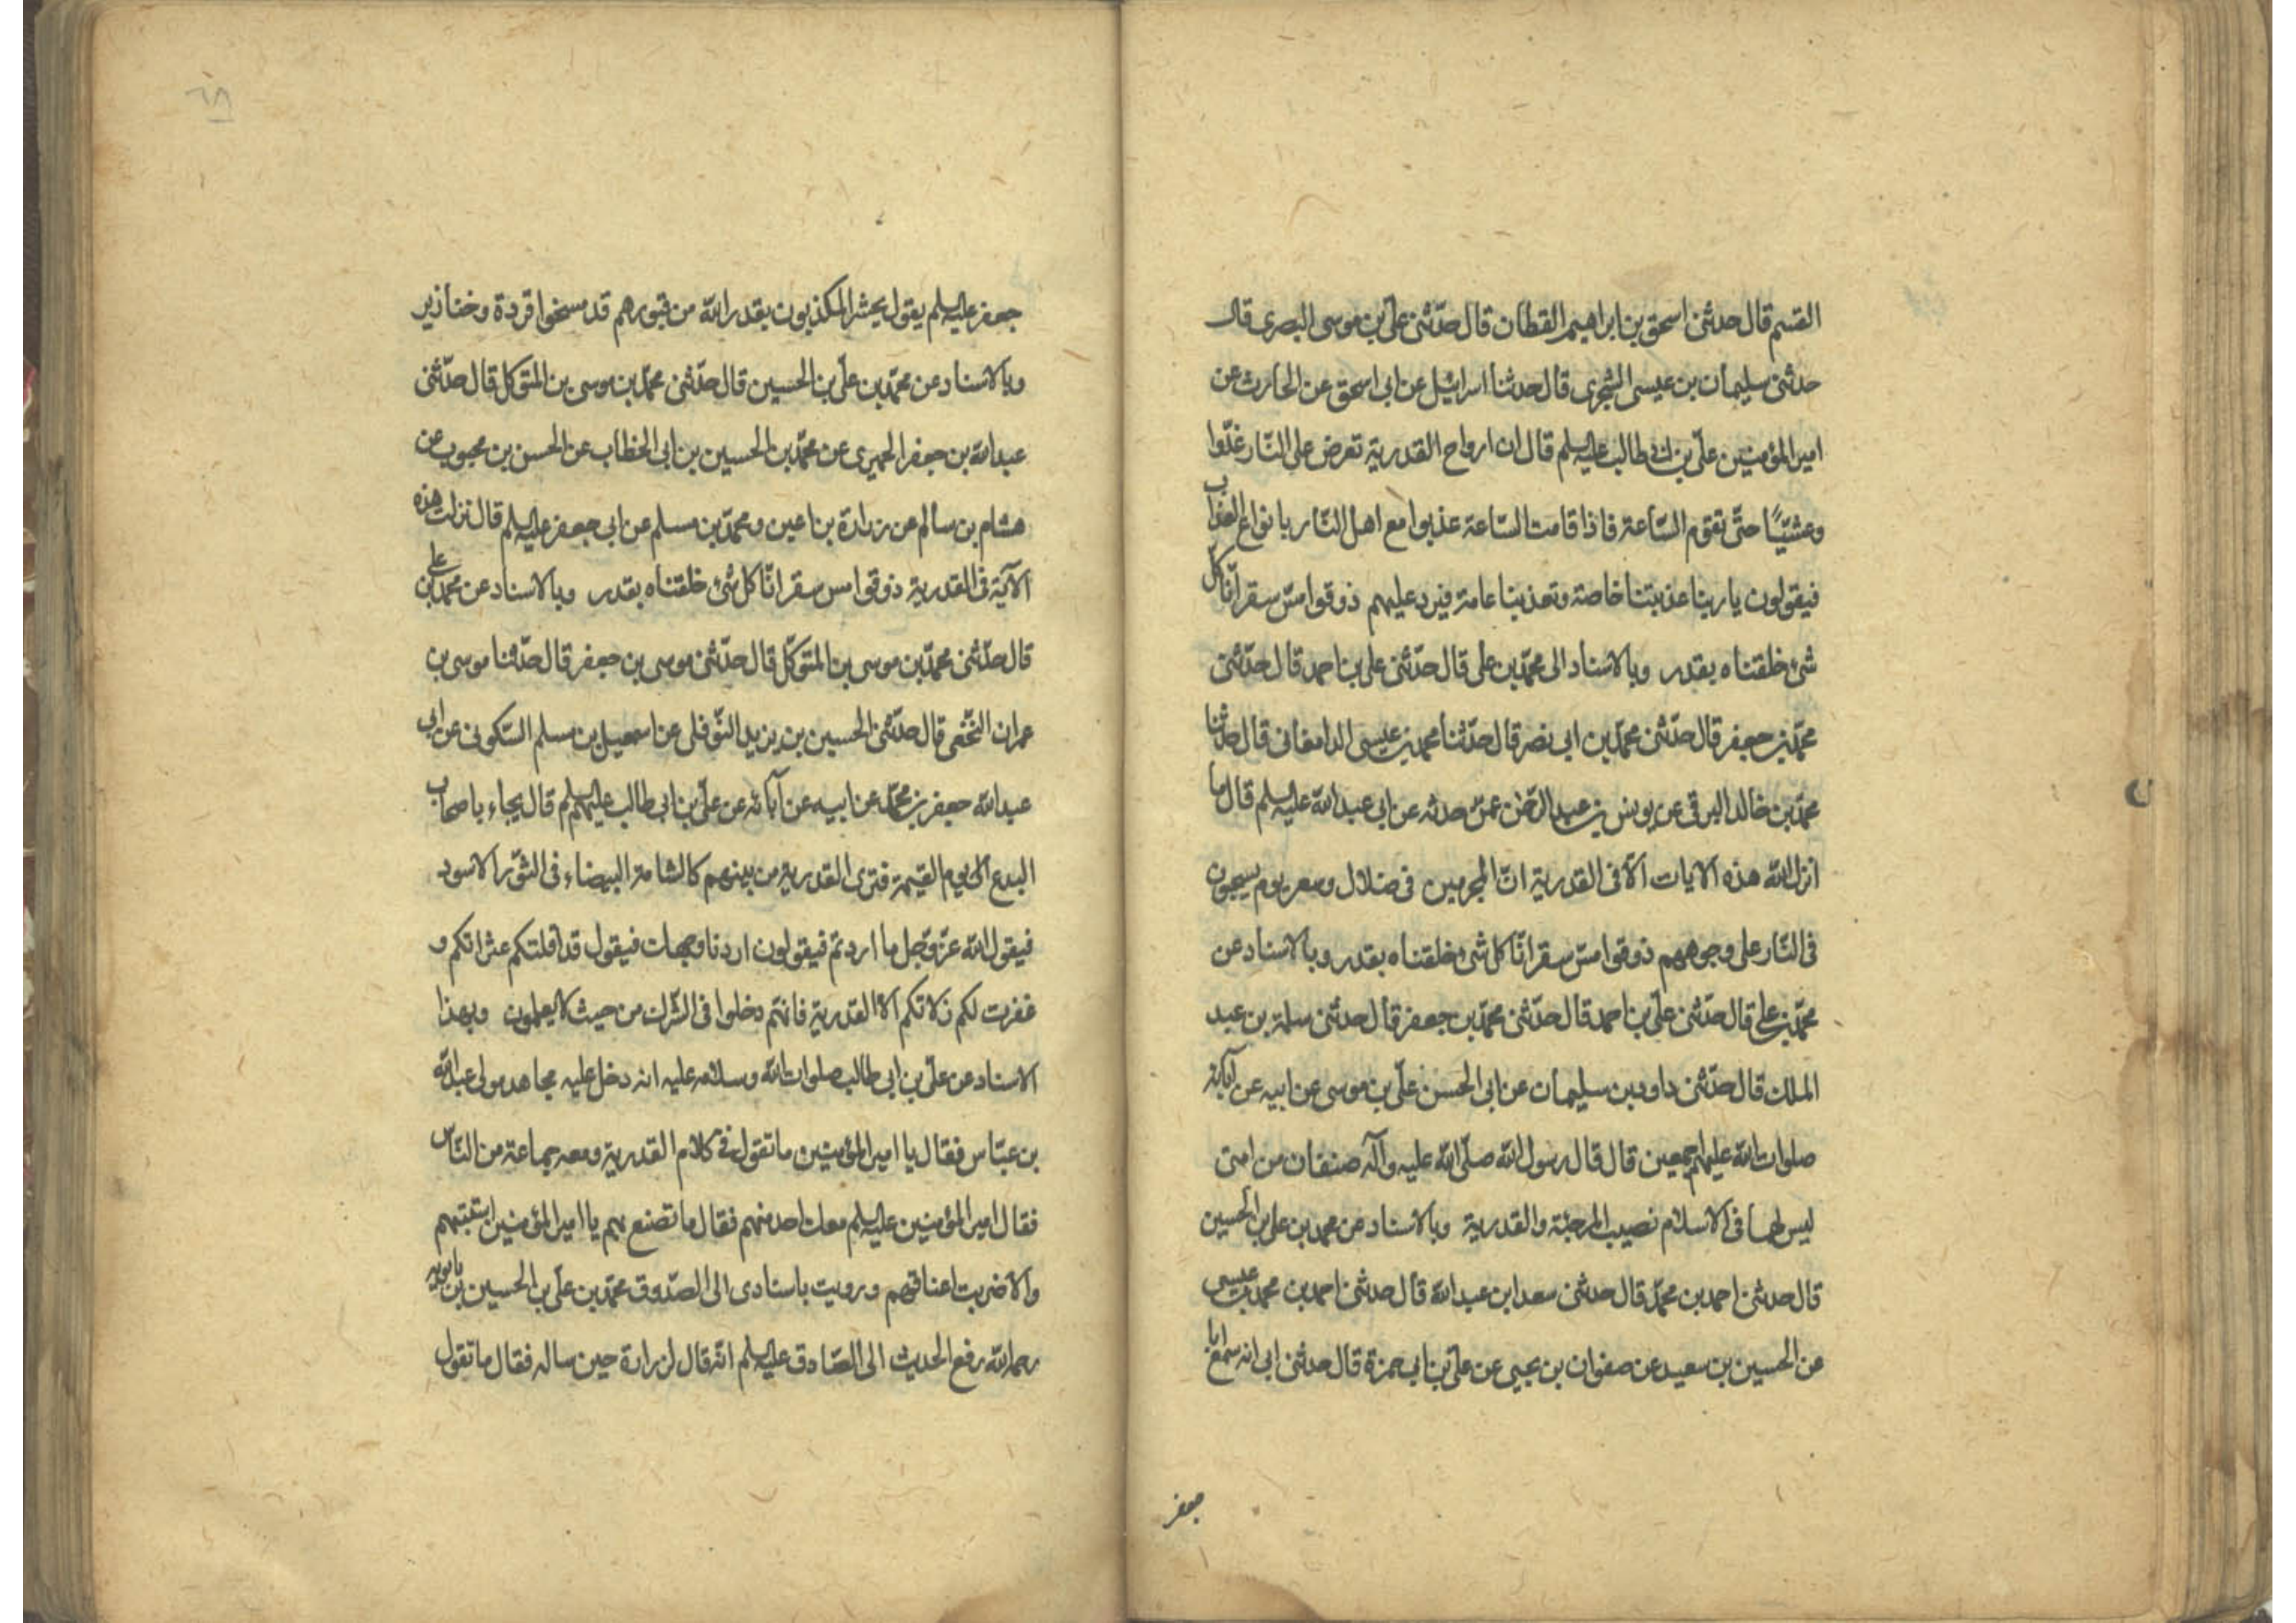 القسم قال حدثنى اسحق بن ابراهيم القطان قال حدّثنى علىّ بن موسى البصرى قال
حدثنى سليمان بن عيسى الشجرى قال حدثنا اسرائيل عن ابى اسحق عن الحارث عن
امير المؤمنين علىّ بن ابى طالب عليه السلم قال ان ارواح القدرية تعرض على النّار غدّوا
وعشيّا حتّى تقوم السّاعة فاذا قامت السّاعة عذبوا مع اهل النّار بانواع العذاب
فيقولون يا ربنا عذبتنا خاصة وتعذبنا عامة فيرد عليهم ذوقوا مسّ سقر انّا كل
شئ خلقناه بقدر وبالاسناد الى محمّد بن على قال حدّثنى على بن احمد قال حدّثنى
محمّد بن جعفر قال حدّثنى محمّد بن ابى نصر قال حدّثنا محمد بن عيسى الدامغانى قال حدثنا
محمّد بن خالد البرقى عن يونس بن عبد الرّحمن عمّن حدثه عن ابى عبد الله عليه السلم قال ما
انزل الله هذه الايات الّا فى القدرية انّ المجرمين فى ضلال وسعر يوم يسحبون
فى النّار على وجوههم ذوقوا مسّ سقر انّا كل شئ خلقناه بقدر وبالاسناد عن
محمّد بن على قال حدّثنى علىّ بن احمد قال حدّثنى محمّد بن جعفر قال حدثنى سلمة بن عبد
الملك قال حدّثنى داود بن سليمان عن ابى الحسن علىّ بن موسى عن ابيه عن آبائه
صلوات الله عليهم اجمعين قال قال رسول الله صلّى الله عليه وآله صنفان من امتى
ليس لهما فى الاسلام نصيب المرجئة والقدرية وبالاسناد عن محمد بن على بن الحسين
قال حدثنى احمد بن محمّد قال حدثنى سعد ابن عبد الله قال حدثنى احمد بن محمد بن عيسى
عن الحسين بن سعيد عن صفوان بن يحيى عن علىّ بن ابى حمزة قال حدثنى ابى انه سمع ابا
جعفر
جعفر عليه السلم يقول يحشر المكذبون بقدر الله من قبورهم قد مسخوا قردة وخنازير
وبالاسناد عن محمّد بن علىّ بن الحسين قال حدّثنى محمّد بن موسى بن المتوكل قال حدّثنى
عبد الله بن جعفر الحميرى عن محمّد بن الحسين بن ابى الخطاب عن الحسن بن محبوب عن
هشام بن سالم عن زرارة بن اعين ومحمّد بن مسلم عن ابى جعفر عليه السلم قال نزلت هذه
الآية فى القدرية ذوقوا مس سقر انّا كل شئ خلقناه بقدر وبالاسناد عن محمّد بن على
قال حدّثنى محمّد بن موسى بن المتوكّل قال حدّثنى موسى بن جعفر قال حدّثنا موسى بن
عمران النّخعى قال حدّثنى الحسين بن يزيد النّوفلى عن اسمعيل بن مسلم السّكونى عن ابى
عبد الله جعفر بن محمّد عن ابيه عن آبائه عن علىّ بن ابى طالب عليهم السلم قال يجاء باصحاب
البدع الى يوم القيمة فترى القدرية من بينهم كالشامة البيضاء فى الثّور الاسود
فيقول الله عزّ وجّل ما اردتم فيقولون اردنا وجهك فيقول قد اقلتكم عثراتكم و
غفرت لكم زلاتكم الّا القدرية فانهم دخلوا فى الشّرك من حيث لا يعلمون وبهذا
الاسناد عن علىّ بن ابى طالب صلوات الله وسلامه عليه انه دخل عليه مجاهد مولى عبد الله
بن عبّاس فقال يا امير المؤمنين ما تقول فى كلام القدرية ومعه جماعة من النّاس
فقال امير المؤمنين عليه السلم معك احد منهم فقال ما تصنع بهم يا امير المؤمنين استتبتهم
والا ضربت اعناقهم ورويت باسنادى الى الصّدوق محمّد بن علىّ بن الحسين بن بابويه
رحمه الله رفع الحديث الى الصّادق عليه السلم انّه قال لزرارة حين ساله فقال ما تقول